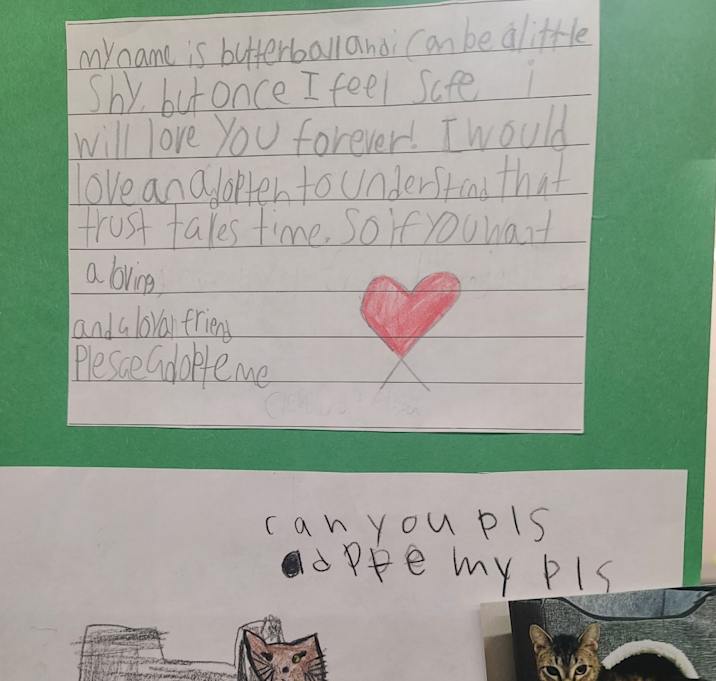 my name is butterball and i can be a little
Shy, but once I feel Safe i
will love you forever! I would
love an adopter to understand that
trust takes time. So if you want
a loving
and a loyal friend
Plesae adopte me
can you pls
adppe my pls